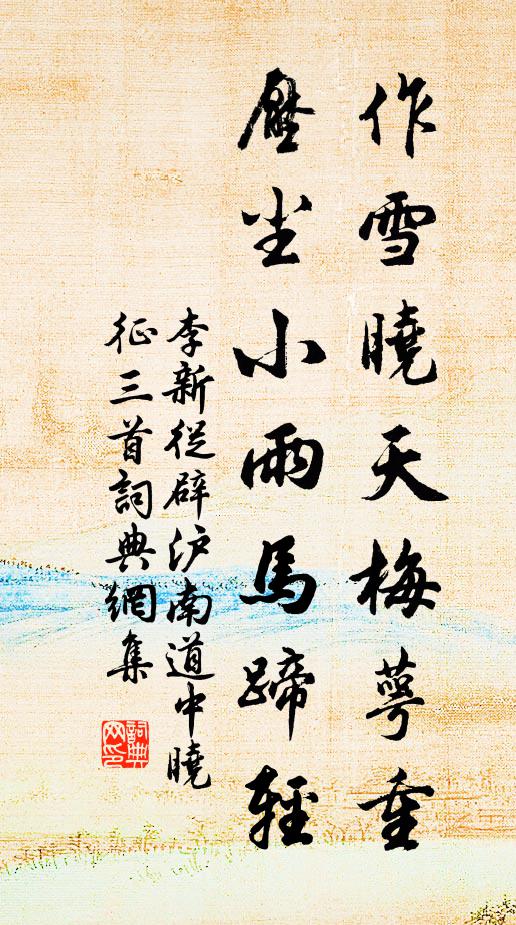 作雪曉天梅萼重
壓尘小雨馬蹄輕
李新從辟沪南道中曉
征三首詞典網集
詞典
网印